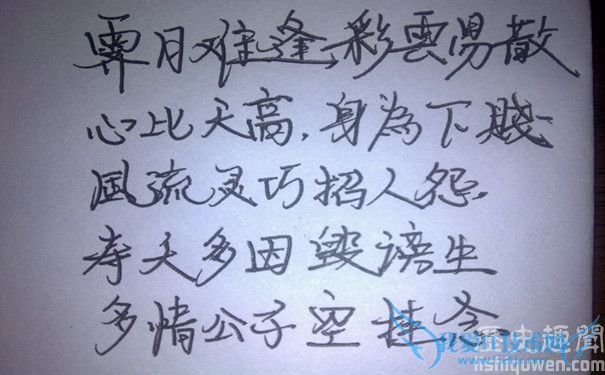 霽月难逢,彩雲易散
心比天高,身為下賤
風流灵巧招人怨.
寿夭多因毁謗生
多情公子空挂念
历史趣聞
lishiquwen.com